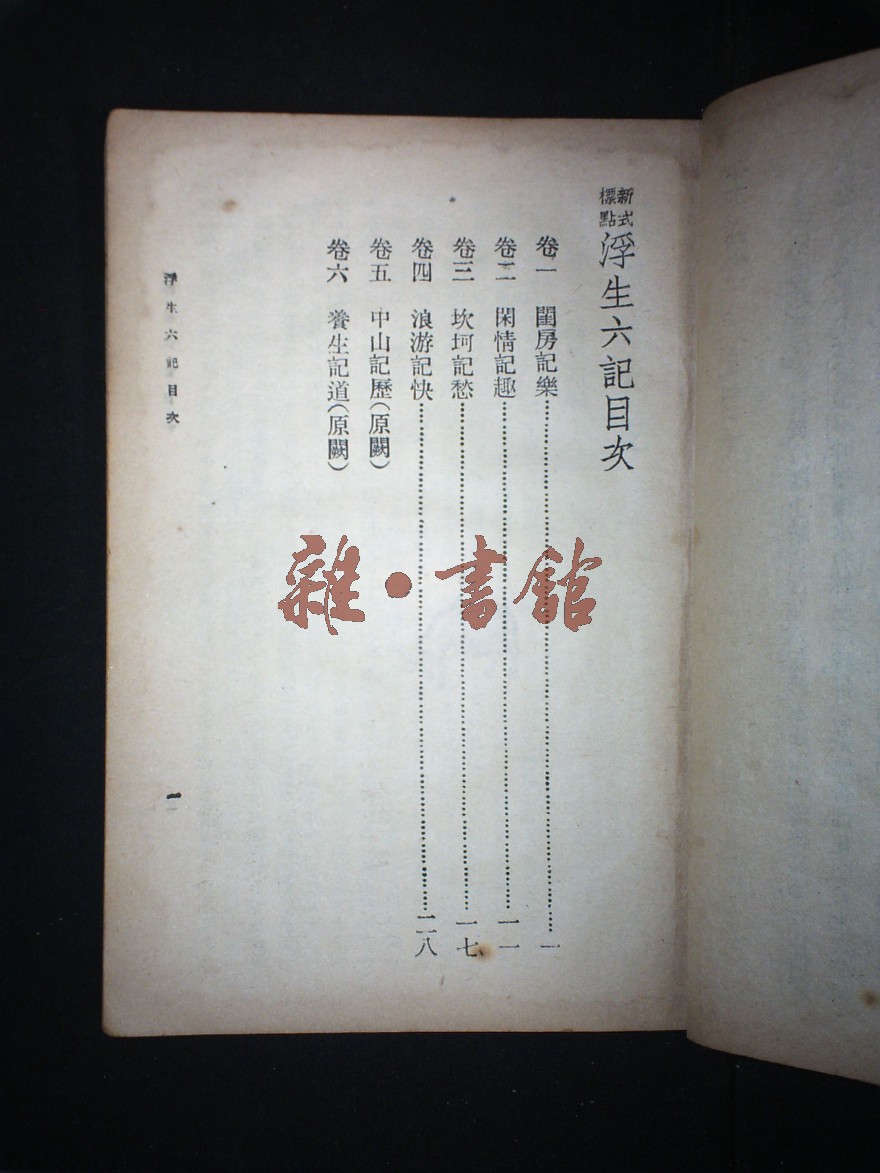 新式標點浮生六記目次
卷一　閨房記樂………一
卷二　閑情記趣………一一
卷三　坎坷記愁………一七
卷四　浪游記快………二八
卷五　中山記歷（原闕）
卷六　養生記道（原闕）
浮生六記目次　一
雜·書館